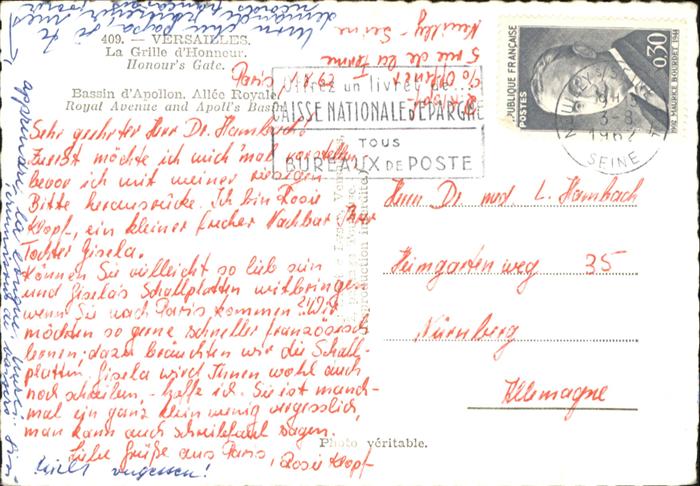 409. – VERSAILLES.
La Grille d'Honneur.
Honour's Gate.
Bassin d'Apollon. Allée Royale
Royal Avenue and Apoll's Basin
Paris, 1.8.62
Sehr geehrter Herr Dr. Hambach!
Zuerst möchte ich mich 'mal vorstellen
bevor ich mit meiner riesigen
Bitte herausrücke. Ich bin Rosie
Klopf, ein kleiner frecher Nachbar Ihrer
Tochter Gisela.
Können Sie vielleicht so lieb sein
und Gisela's Schallplatten mitbringen
wenn Sie nach Paris kommen? Wir
möchten so gerne schneller französisch
lernen; dazu bräuchten wir die Schall-
platten. Gisela wird Ihnen wohl auch
noch schreiben, - hoffe ich. Sie ist manch-
mal ein ganz klein wenig vergesslich,
man kann auch schreibfaul sagen.
Liebe Grüße aus Paris,
Rosie Klopf
nicht vergessen!
Photo véritable.
5 rue de la Ferme
Neuilly - Seine
CAISSE NATIONALE D'EPARGNE
TOUS
BUREAUX DE POSTE
RÉPUBLIQUE FRANÇAISE
POSTES
0,30
1902 MAURICE BOURDET 1944
3-8
1962
SEINE
Herrn Dr. med. L. Hambach
Heimgartenweg 35
Nürnberg
Allemagne